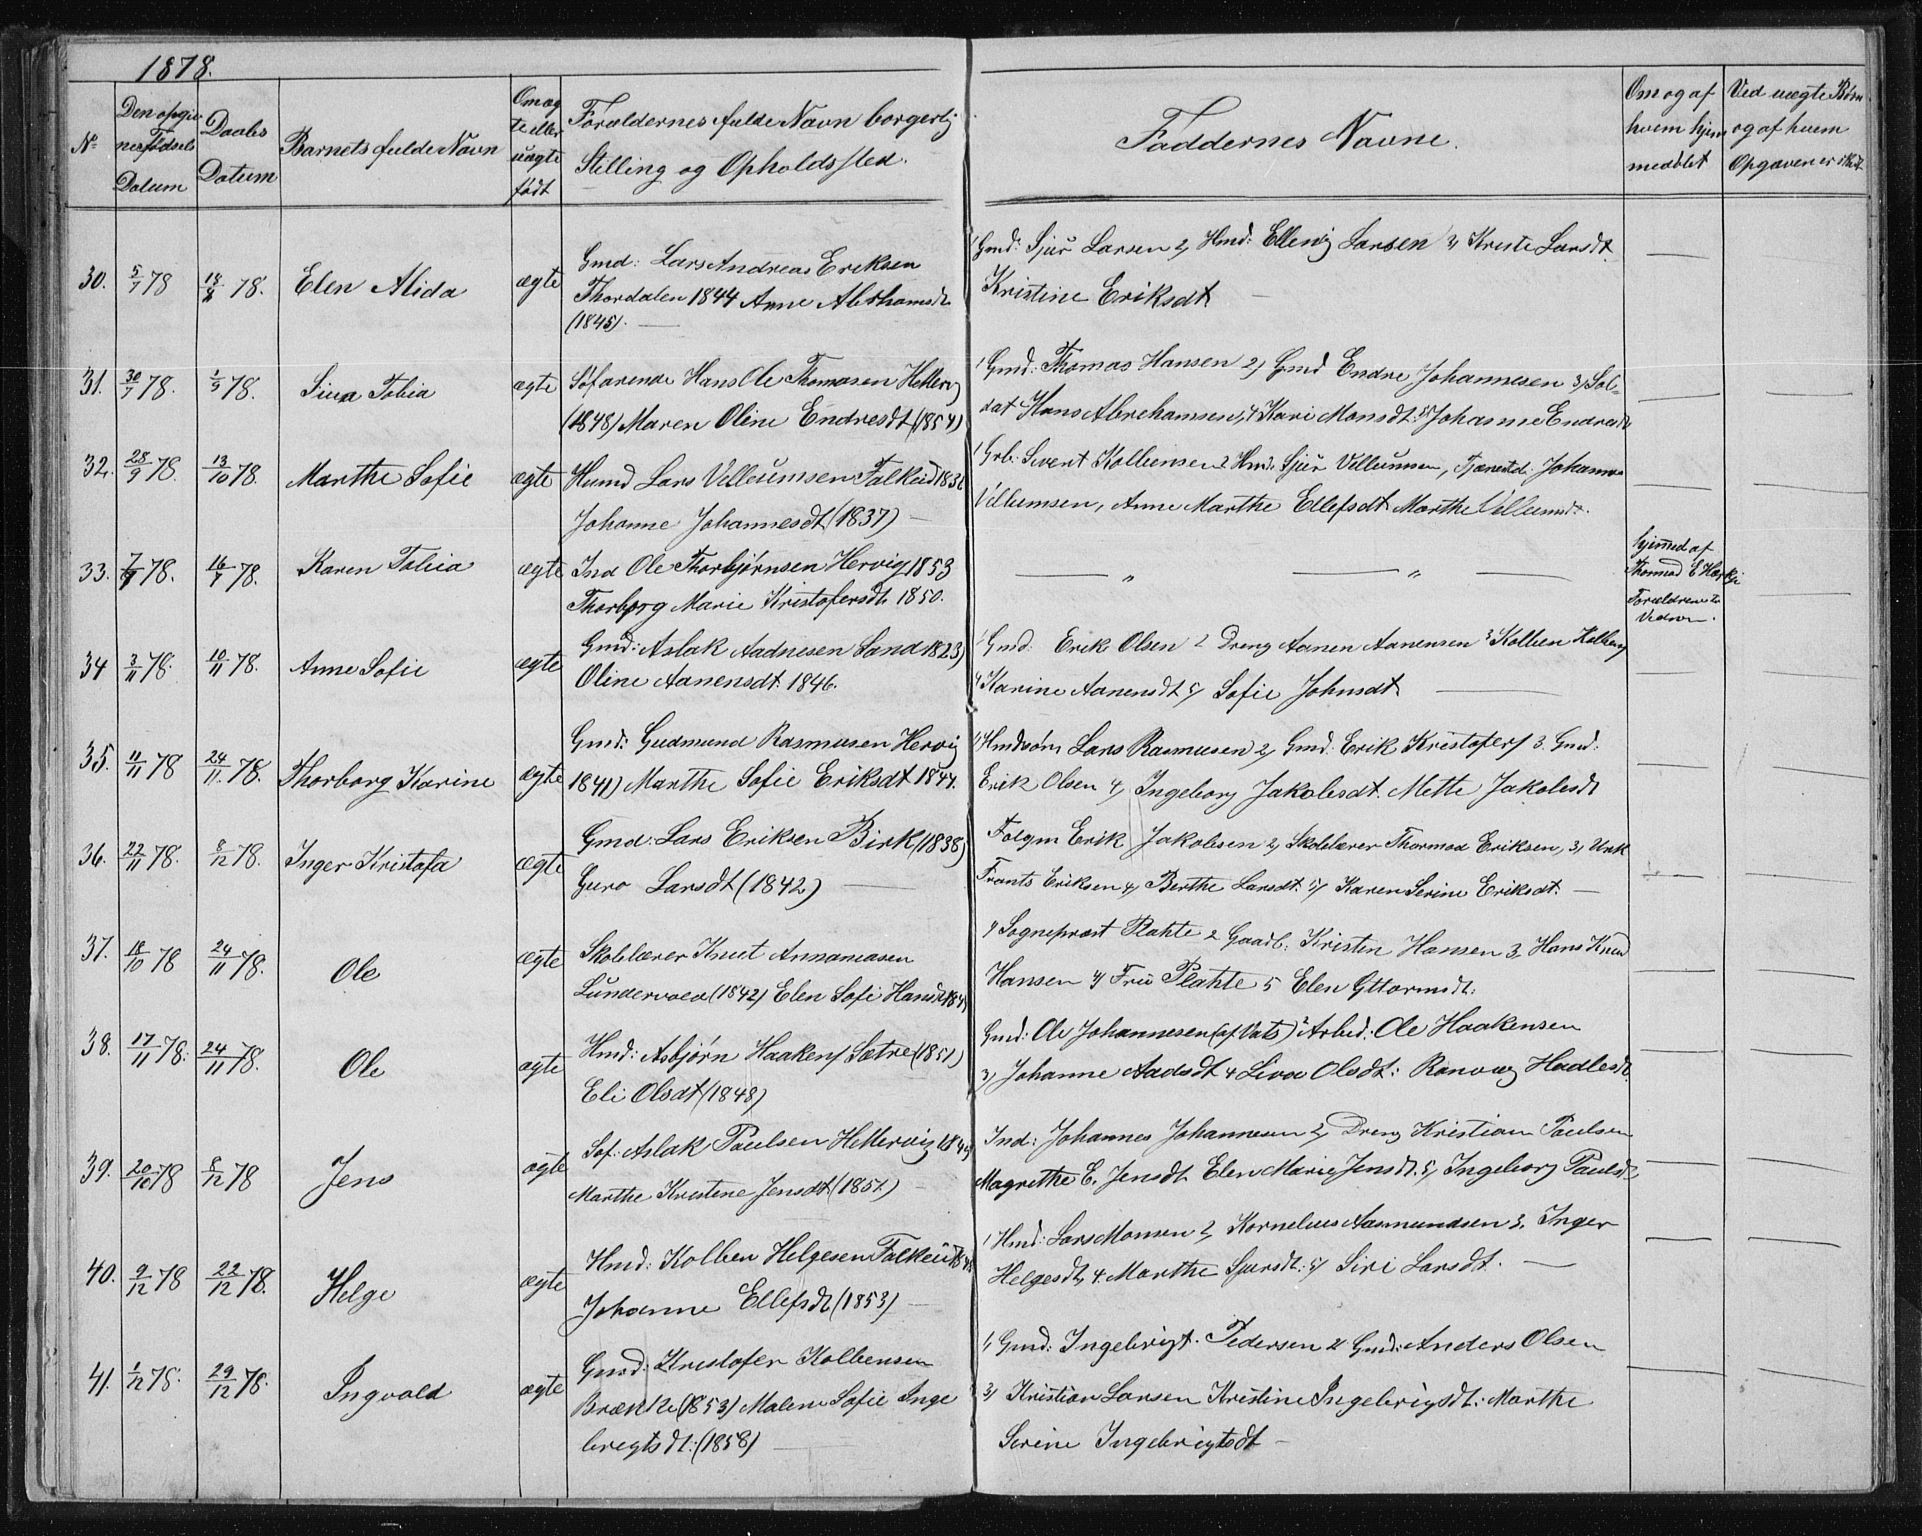 1878.
No
Den opgivne Fødsels Datum
Daabs Datum
Barnets fulde Navn
Om ægte eller uægte født
Forældernes fulde Navn borgerlig
Stilling og Opholdssted.
Faddernes Navne.
Om og af hvem hjemmedøbt
Ved uægte Børn og af hvem Opgaven er skeet
30. 5/7 78 18/8 78. Elen Alida ægte
Gmd: Lars Andreas Eriksen
Thordalen 1844 Anne Abrahamsdt
(1845).
Gmd: Sjur Larsen 2, Hmd: Ellevig Larsen 3, Kriste Larsdt.
Kristine Eriksdt
31. 30/7 78. 1/9 78. Sina Tobia ægte
Søfarende Hans Ole Thomasen Hettervg
(1848) Maren Oline Endresdt (1854)
1 Gmd: Thomas Hansen 2, Gmd Endre Johannesen 3, Sol-
dat Hans Abrehamsen, 4 Kari Monsdt: 5, Johanne Endresdt
32. 28/9 78. 13/10 78. Marthe Sofie ægte
Husmd Lars Velleumsen Falkeid 1836
Johanne Johannesdt (1837)
1 Grb: Sivert Kolbensen 2 Hmd: Sjur Villumsen, Tjenestd: Johannes
Villumsen, Anne Marthe Ellefsdt Marthe Villumsdt.
33. 7/6 78. 16/7 78. Karen Tolina ægte
Ind Ole Thorbjørnsen Hervig 1853
Thorborg Marie Kristofersdt. 1850.
" "
hjemmed af
Thormod E
Forældrene er
34 3/11 78. 10/11 78. Anne Sofie ægte
Gmd: Aslak Aadnesen Sand 1823)
Oline Aanensdt. 1846.
1 Gmd: Erik Olsen 2 Dreng Aanen Aanensen 3 Kolben Kolbens
4 Karine Aanensdt 5, Sofie Johnsdt.
35. 11/11 78 24/11 78. Thorborg Karine ægte
Gmd: Gudmund Rasmusen Hervig
1841) Marthe Sofie Eriksdt 1844.
1 Hmdsøn Lars Rasmusen 2, Gmd. Erik Kristofers 3. Gmd.
Erik Olsen 4, Ingeborg Jakobsdt. Mette Jakobsdt
36. 22/11 78. 8/12 78. Inger Kristofa ægte
Gmd: Lars Eriksen Birk (1838)
Guro Larsdt (1842)
Folgm Erik Jakobsen 2, Skolelærer Thormod Eriksen, 3, Unk
Frants Eriksen 4, Berthe Larsdt. 5, Karen Serine Eriksdt.
37. 18/10 78 24/11 78. Ole ægte
Skolelærer Knut Annamasen
Lundervold (1842) Elen Sofi Hansdt 184
1 Sogneprest Plahte 2 Gaardb: Kristen Hansen 3, Hans Knud
Hansen 4, Fru Plahte 5 Elen Gttormsdt:
38. 17/11 78. 24/11 78. Ole ægte
Hmd: Asbjørn Haakens Sætre (1851)
Eli Olsdt (1848)
Gmd: Ole Johannesen (af Vats) 2 Arbed: Ole Haakensen
3, Johanne Aadsdt 4 Liva Olsdt: Ranvæg Hadlesdt.
39. 20/10 78 8/12 78 Jens ægte
Sof: Aslak Paulsen Hettervig 184
Marthe Kristine Jensdt (1851)
Ind: Johannes Johannesen 2, Dreng Kristian Paulsen
Magrethe E. Jensdt Elen Marie Jensdt. 5, Ingeborg Paulsdt.
40. 9/12 78 22/12 78. Helge ægte
Hmd: Kolben Helgesen Falkeid 184
Johanne Ellefsdt (1853)
1 Hmd: Lars Monsen 2, Kornelius Aasmundsen 3, Inger
Helgesdt, 4. Marthe Sjursdt: 5, Siri Larsdt.
41. 1/12 78. 29/12 78. Ingvald ægte
Gmd: Kristofer Kolbensen
Brække (1853) Malene Sofie Inge
bregtsdt: (1858)
1, Gmd: Ingebrigt. Pedersen 2 Gmd: Anders Olsen
3, Kristian Larsen Kristine Ingebrigsdt: Marthe
Serine Ingebrigtsdt